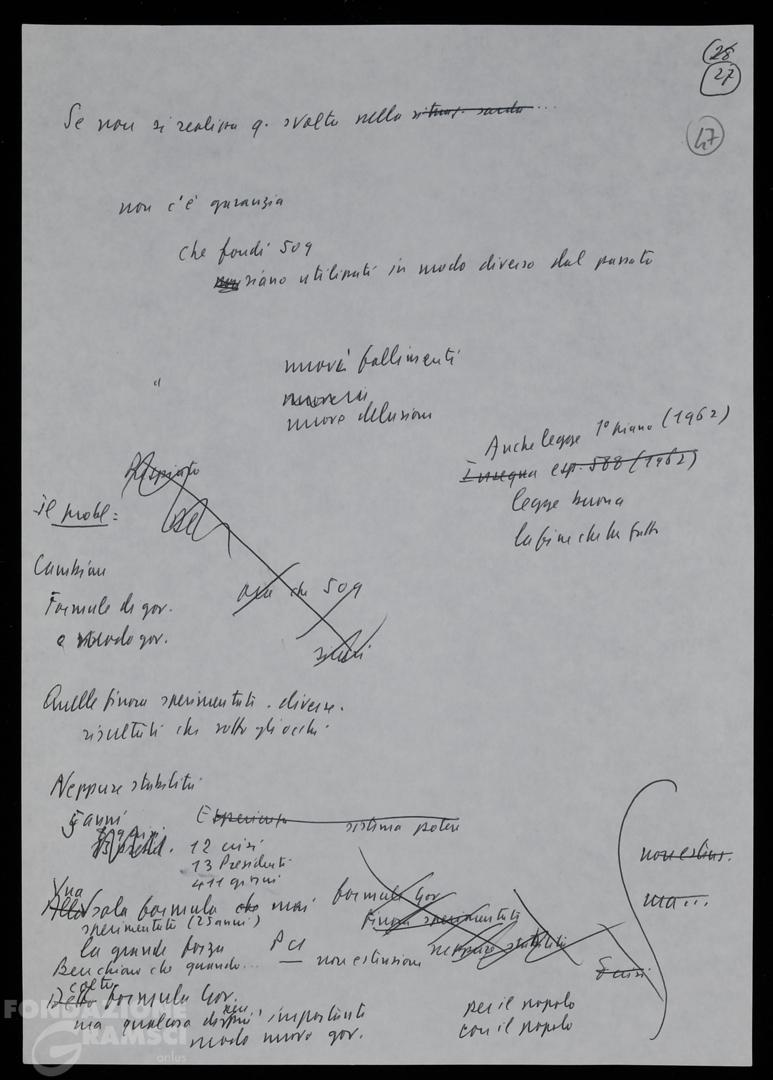 28
27
47
Se non si realizza q. svolta nella situaz. sarda...
non c'è garanzia
che fondi 509
siano utilizzati in modo diverso dal passato
"
nuovi fallimenti
nuove delusioni
Anche legge 1° piano (1962)
esp. 588 (1962)
legge buona
la fine che ha fatto
il probl=
Cambiare
Formule di gov.
e modo gov.
che 509
Quelle finora sperimentate. diverse.
risultati che sotto gli occhi
Neppure stabilità
5 anni
sistema potere
12 crisi
13 Presidenti
411 giorni
Una
sola formula mai
sperimentata (25 anni)
formule Gov
finora sperimentate
neppure stabilità
la grande forza PCI
non estinzione
Ben chiaro che quando...
Formula Gov.
ma qualcosa di più importante
modo nuovo gov.
ma...
5 crisi
per il popolo
con il popolo
FONDAZIONE
GRAMSCI
onlus